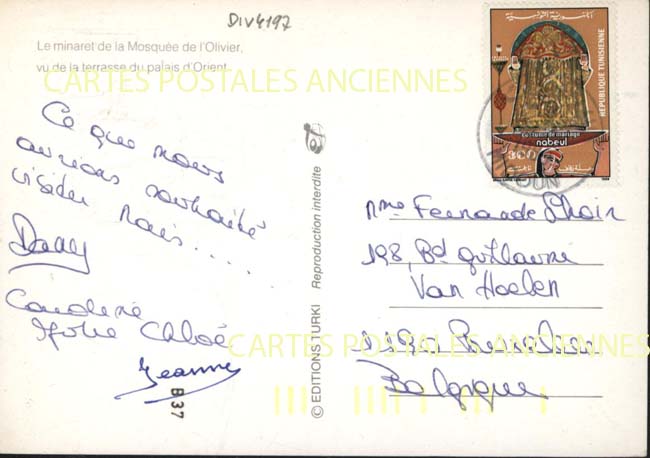 DIV4197
Le minaret de la Mosquée de l'Olivier,
vu de la terrasse du palais d'Orient
CARTES POSTALES ANCIENNES
Ce que nous
aurions souhaité
visiter mais.....
Dany
Caroline
Chloé
Jeanne
B 37
© EDITIONS TURKI Reproduction interdite
REPUBLIQUE TUNISIENNE
costume de mariage
nabeul
300
Mme Fernande
198, Bd Guillaume
Van Haelen
Belgique
CARTES POSTALES ANCIENNES